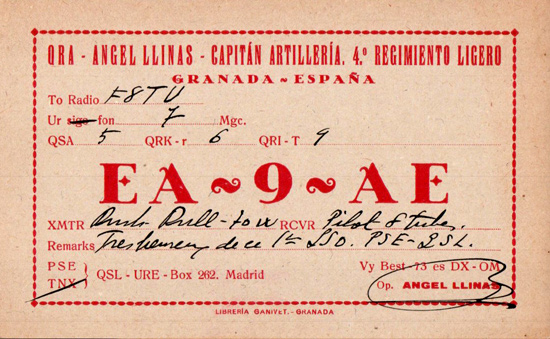 QRA - ANGEL LLINAS - CAPITÁN ARTILLERÍA. 4.º REGIMIENTO LIGERO
GRANADA ~ ESPAÑA
To Radio F8TU
Ur sigs fon 7 Mgc.
QSA 5 QRK - r 6 QRI - T 9
EA ~ 9 ~ AE
XMTR Push Pull - 70 w RCVR Pilot 8 tubes
Remarks Tres heureux de ce 1er QSO. PSE - QSL.
PSE } QSL - URE - Box 262. Madrid Vy Best - 73 es DX - OM
TNX } Op. ANGEL LLINAS
LIBRERÍA GANIVET. - GRANADA